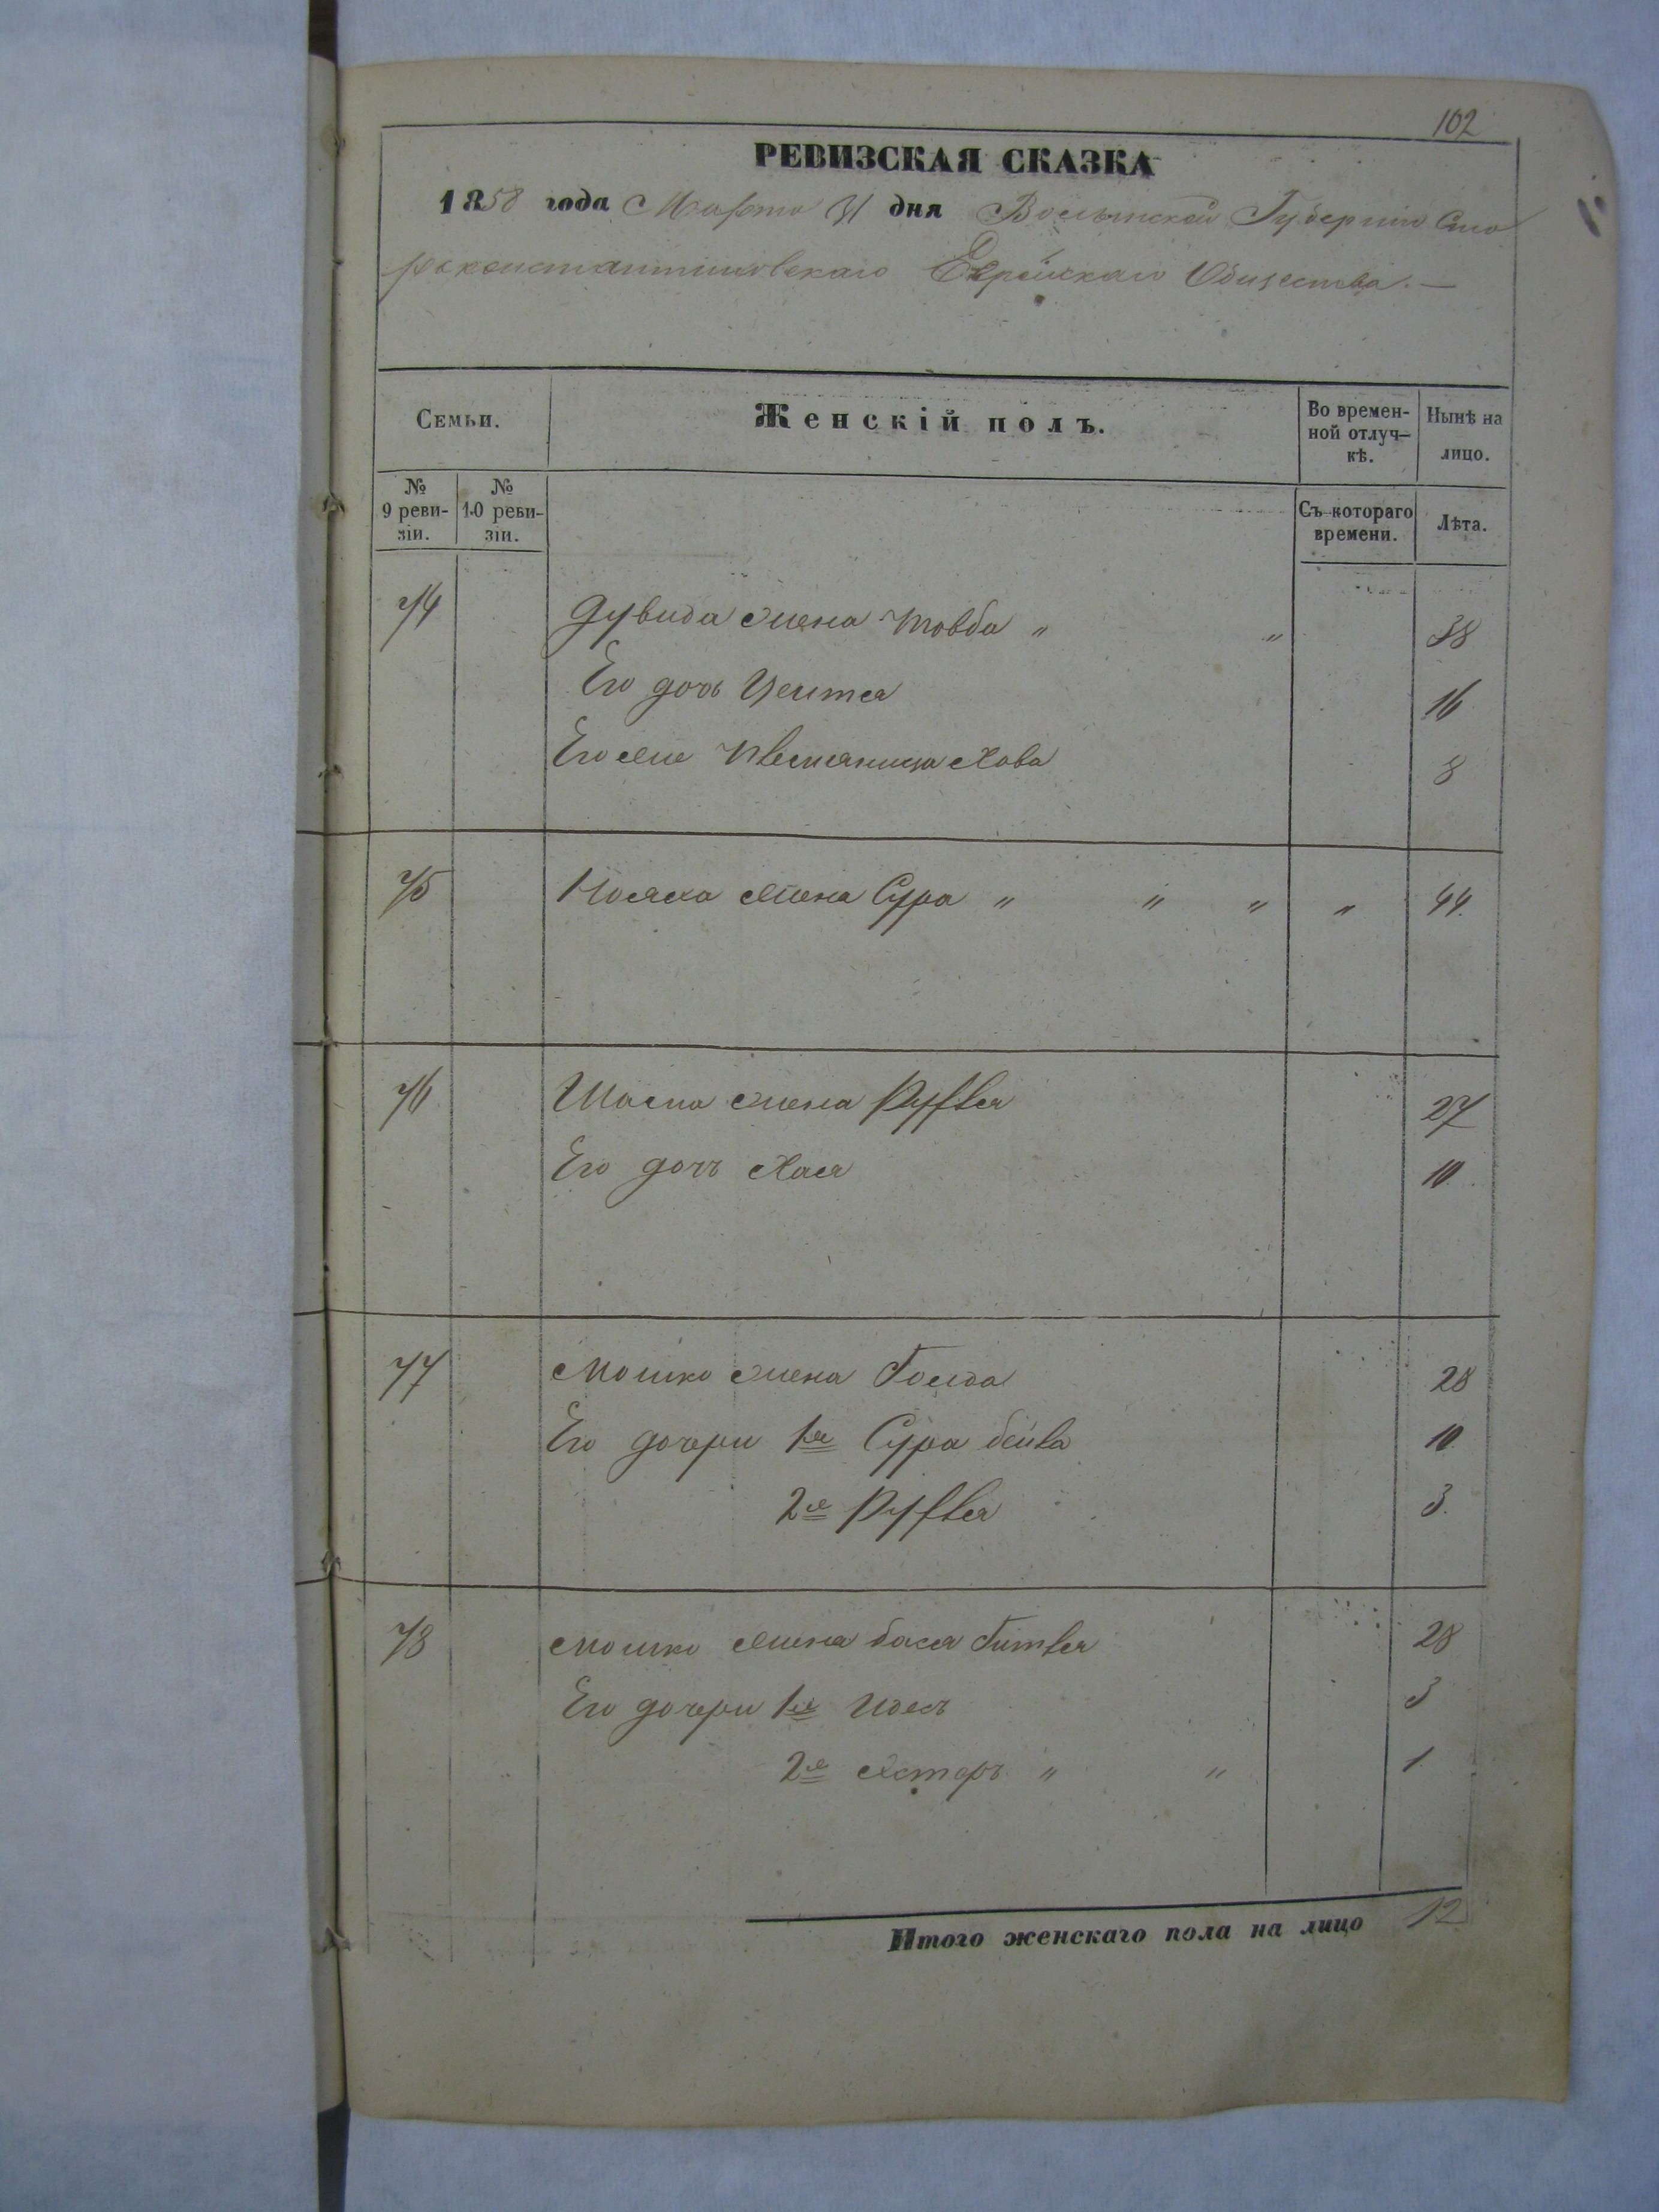 102
РЕВИЗСКАЯ СКАЗКА
1858 года Марта 31 дня Волынской Губерніи Ста
роконстантиновскаго Еврейскаго Общества. —
Семьи.
Женскій полъ.
Во времен-
ной отлуч-
кѣ.
Нынѣ на
лицо.
№
9 реви-
зіи.
№
10 реви-
зіи.
Съ котораго
времени.
Лѣта.
74 Дувида жена Товба " " 38
Его дочь Цептя 16
Его же Племяница Хава 8
75 жена Сура " " " " 44
76 жена Рухля 27
Его дочь Хася 10
77 Мошко жена Голда 28
Его дочери 1я Сура бейла 10
2я Рухля 3
78 Мошко жена бася Гитля 28
Его дочери 1я Идесъ 3
2я Эстеръ " " 1
Итого женскаго пола на лицо 12